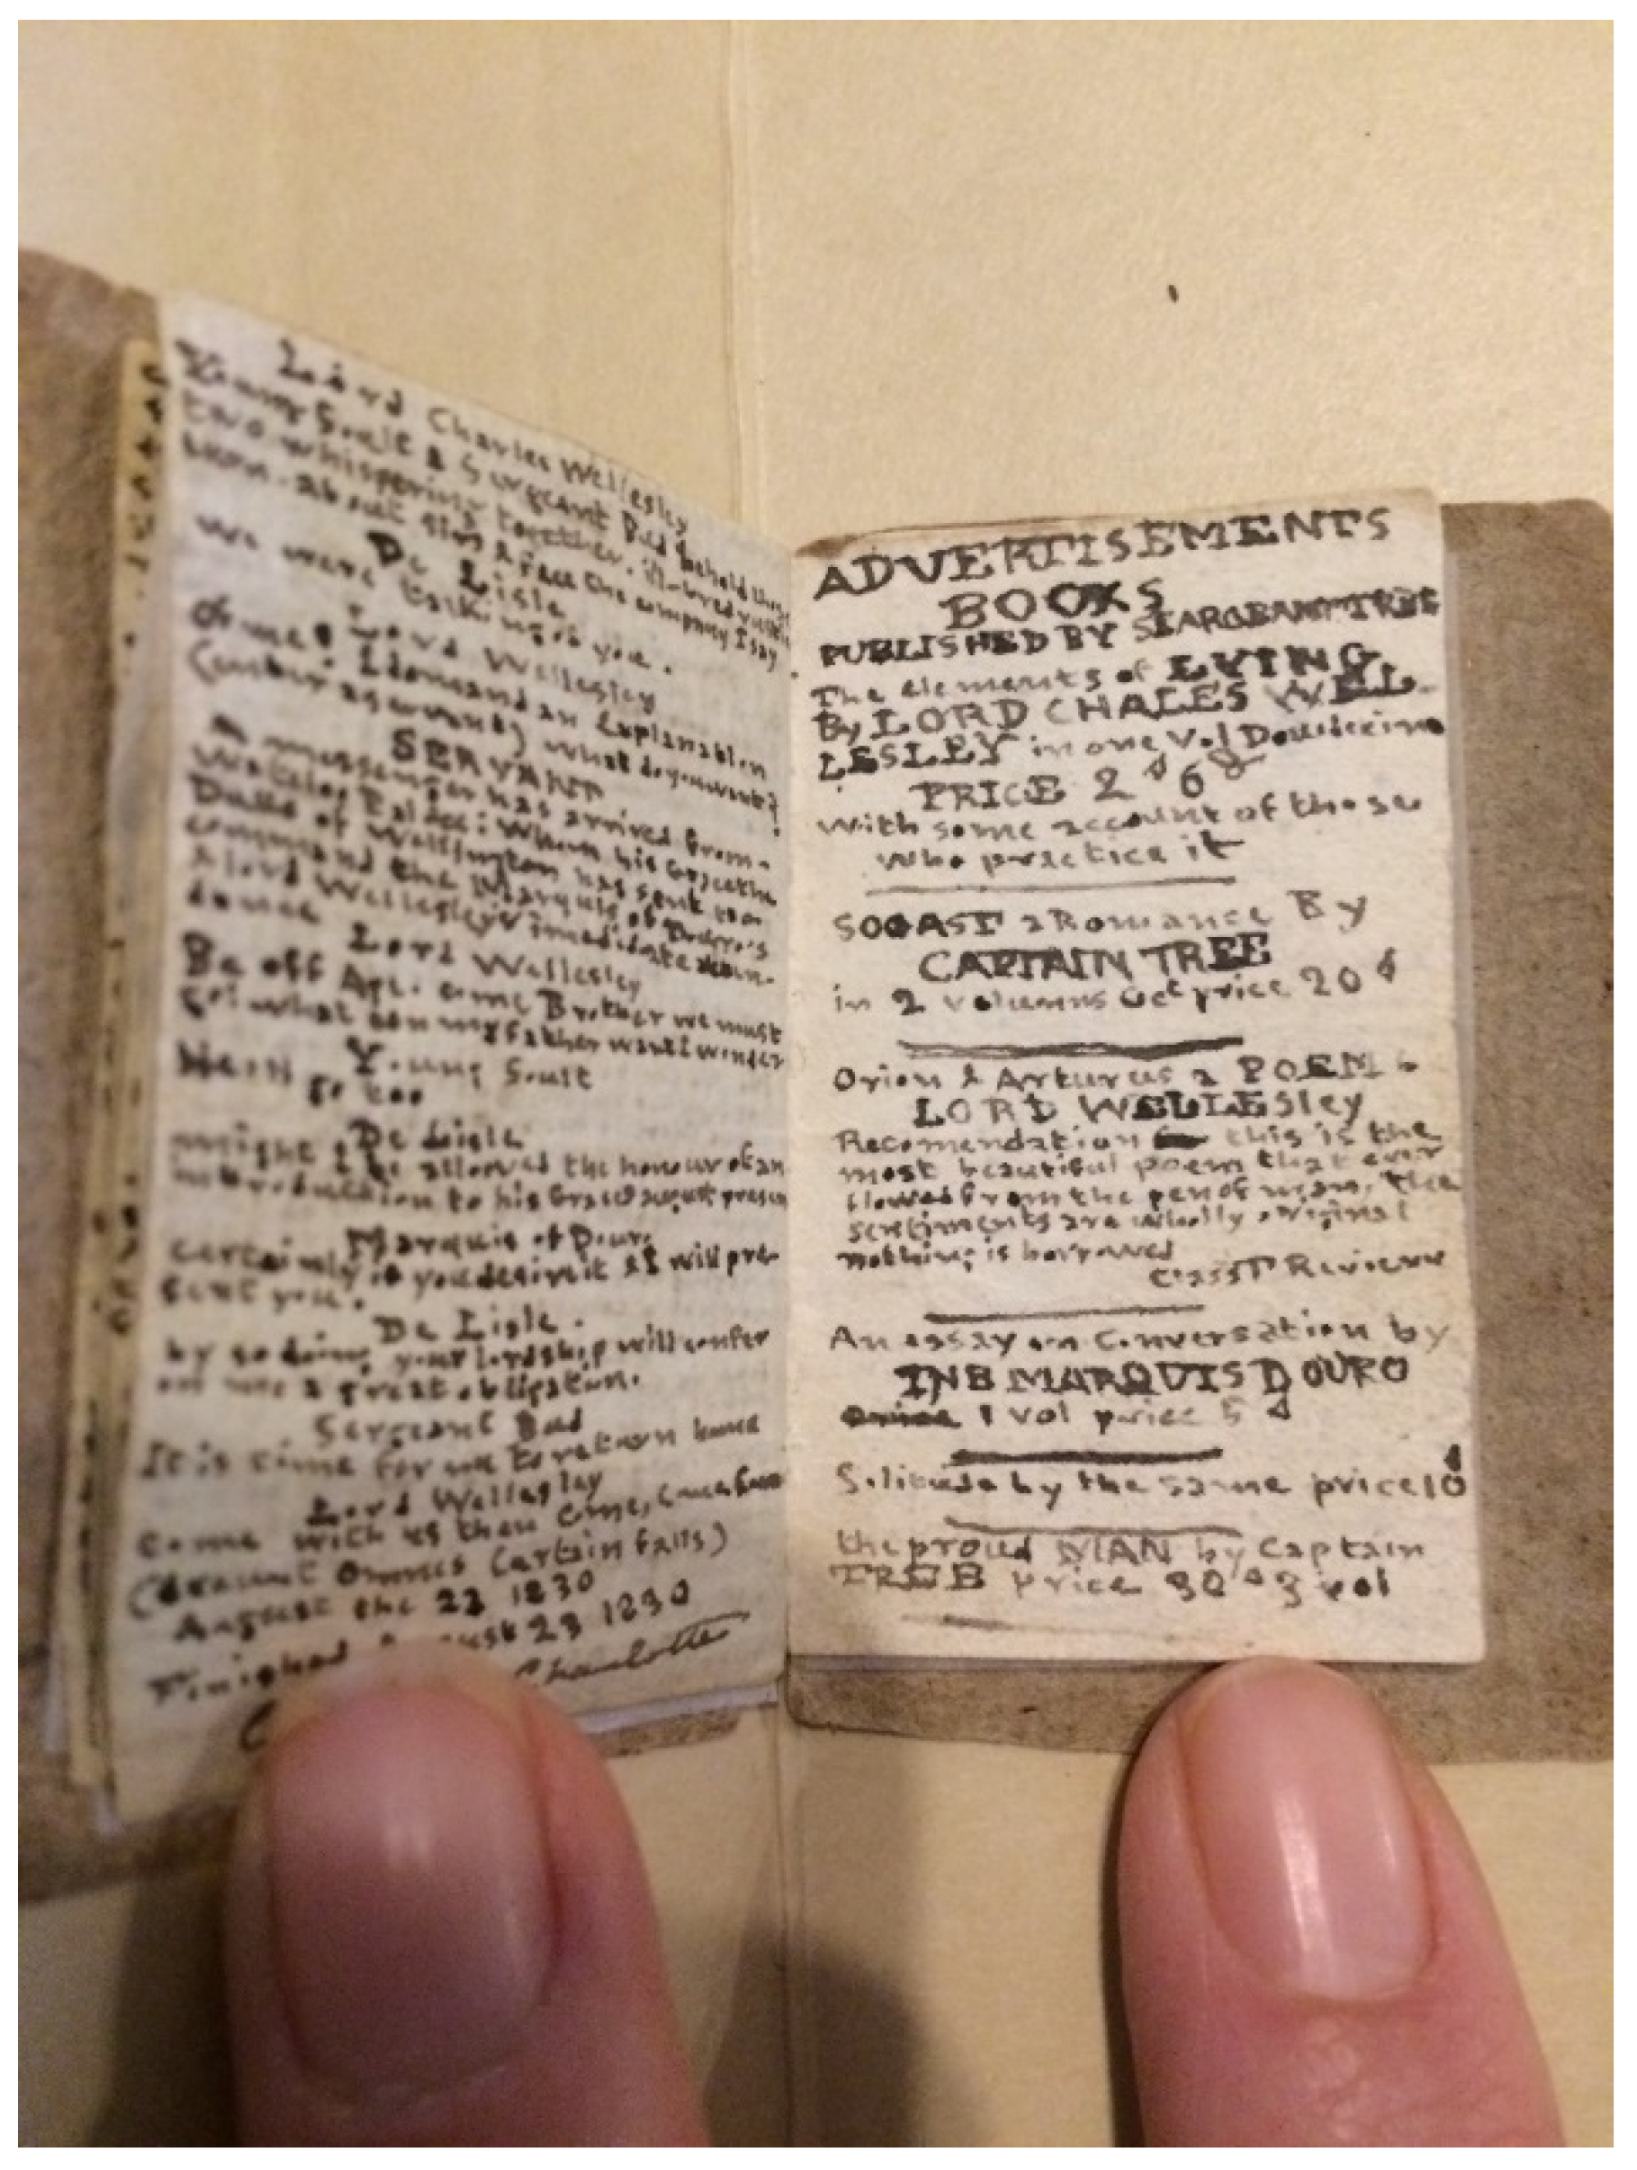 Lord Charles Wellesley
Young Soult & Sergeant Bud behold those
two whispering together. ill-bred
them. about him & face the company I say
De Lisle
we were talking of you.
Lord Wellesley
Of me! I demand an Explanation
(enter a servant) what do you want?
SERVANT
A messenger has arrived from
Waterloo Palace: Whom his Grace the
Duke of Wellington has sent to
command the Marquis of Douro's
& lord Wellesley's imediate atten-
dance
Lord Wellesley
Be off Ape. come Brother we must
go! what can my father want I wonder
Young Soult
go too
De Lisle
might I be allowed the honour of an
introduction to his Grace's august presen
Marquis of Douro
certainly if you desire it I will pre-
sent you.
De Lisle.
by so doing your lordship will confer
on me a great obligation.
Sergeant Bud
It is time for me to return home
Lord Wellesley
Come with us then come, come
(Exeunt Omnes Curtain falls)
August the 22 1830
Finished August 23 1830
Charlotte
ADVERTISEMENTS
BOOKS
PUBLISHED BY SEARGEANT TREE
The elements of LYING
By LORD CHALES WELL-
LESLEY in one Vol Douidecimo
PRICE 2s 6d
With some account of those
who practice it
SOGAST a Romance By
CAPTAIN TREE
in 2 volumns Oct price 20s
Orion & Arturus a POEM
LORD WELLESley
Recomendation this is the
most beautiful poem that ever
flowed from the pen of man, the
sentiments are wholly original
nothing is borrowed
Review
An essay on Conversation by
THE MARQUIS DOURO
1 vol price 5s
Solitude by the same price 10s
the proud MAN by Captain
TREE price 30s 3 vol